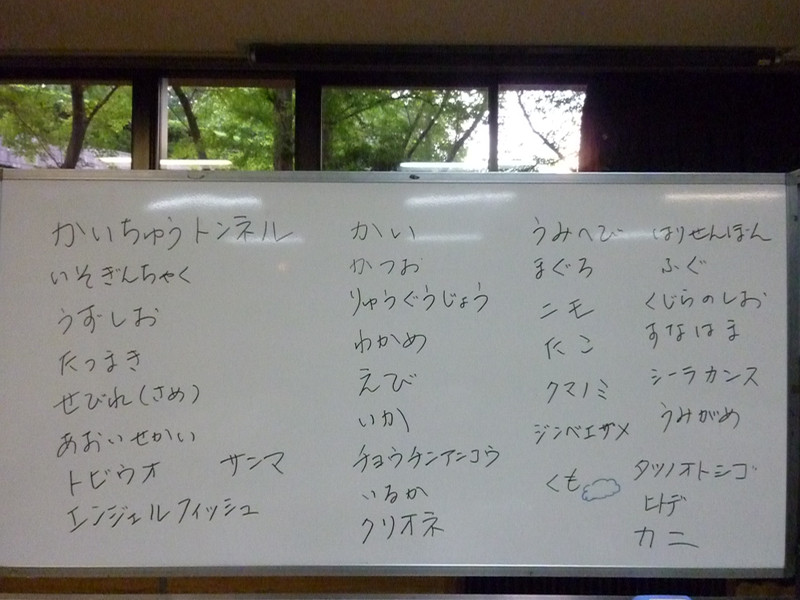 かいちゅうトンネル
いそぎんちゃく
うずしお
たつまき
せびれ(さめ)
あおいせかい
トビウオ サンマ
エンジェルフィッシュ
かい
かつお
りゅうぐうじょう
わかめ
えび
いか
チョウチンアンコウ
いるか
クリオネ
うみへび
まぐろ
ニモ
たこ
クマノミ
ジンベエザメ
くも
はりせんぼん
ふぐ
くじらのしお
すなはま
シーラカンス
うみがめ
タツノオトシゴ
ヒトデ
カニ